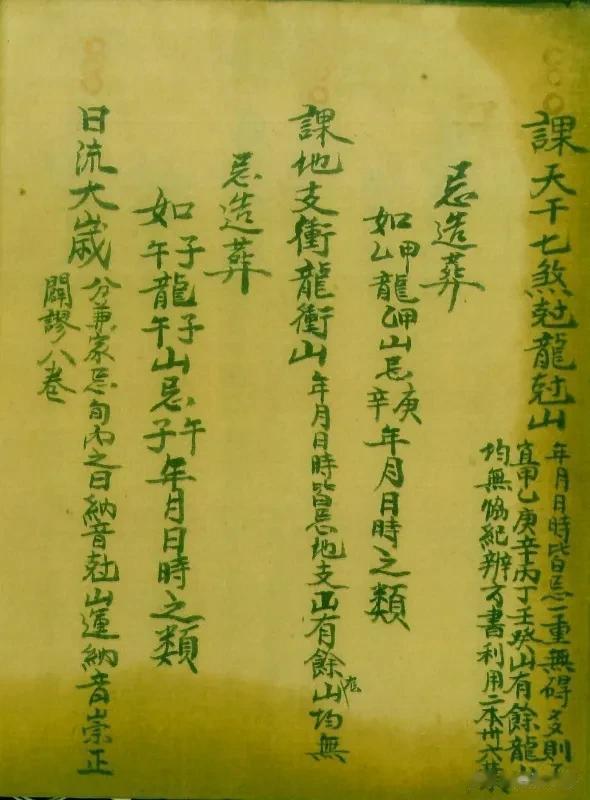 課天干七煞尅龍尅山
年月日時皆忌一重無碍多則不
宜甲乙庚辛丙丁壬癸山有餘龍山
均無協紀辨方書利用二本卅六頁
忌造葬
如甲乙龍甲乙山忌庚辛年月日時之類
課地支衝龍衝山年月日時皆忌地支山有餘山均無
忌造葬
如子午龍子午山忌午子年月日時之類
日流大歲分兼家忌旬內之日納音尅山運納音崇正
闢謬八卷